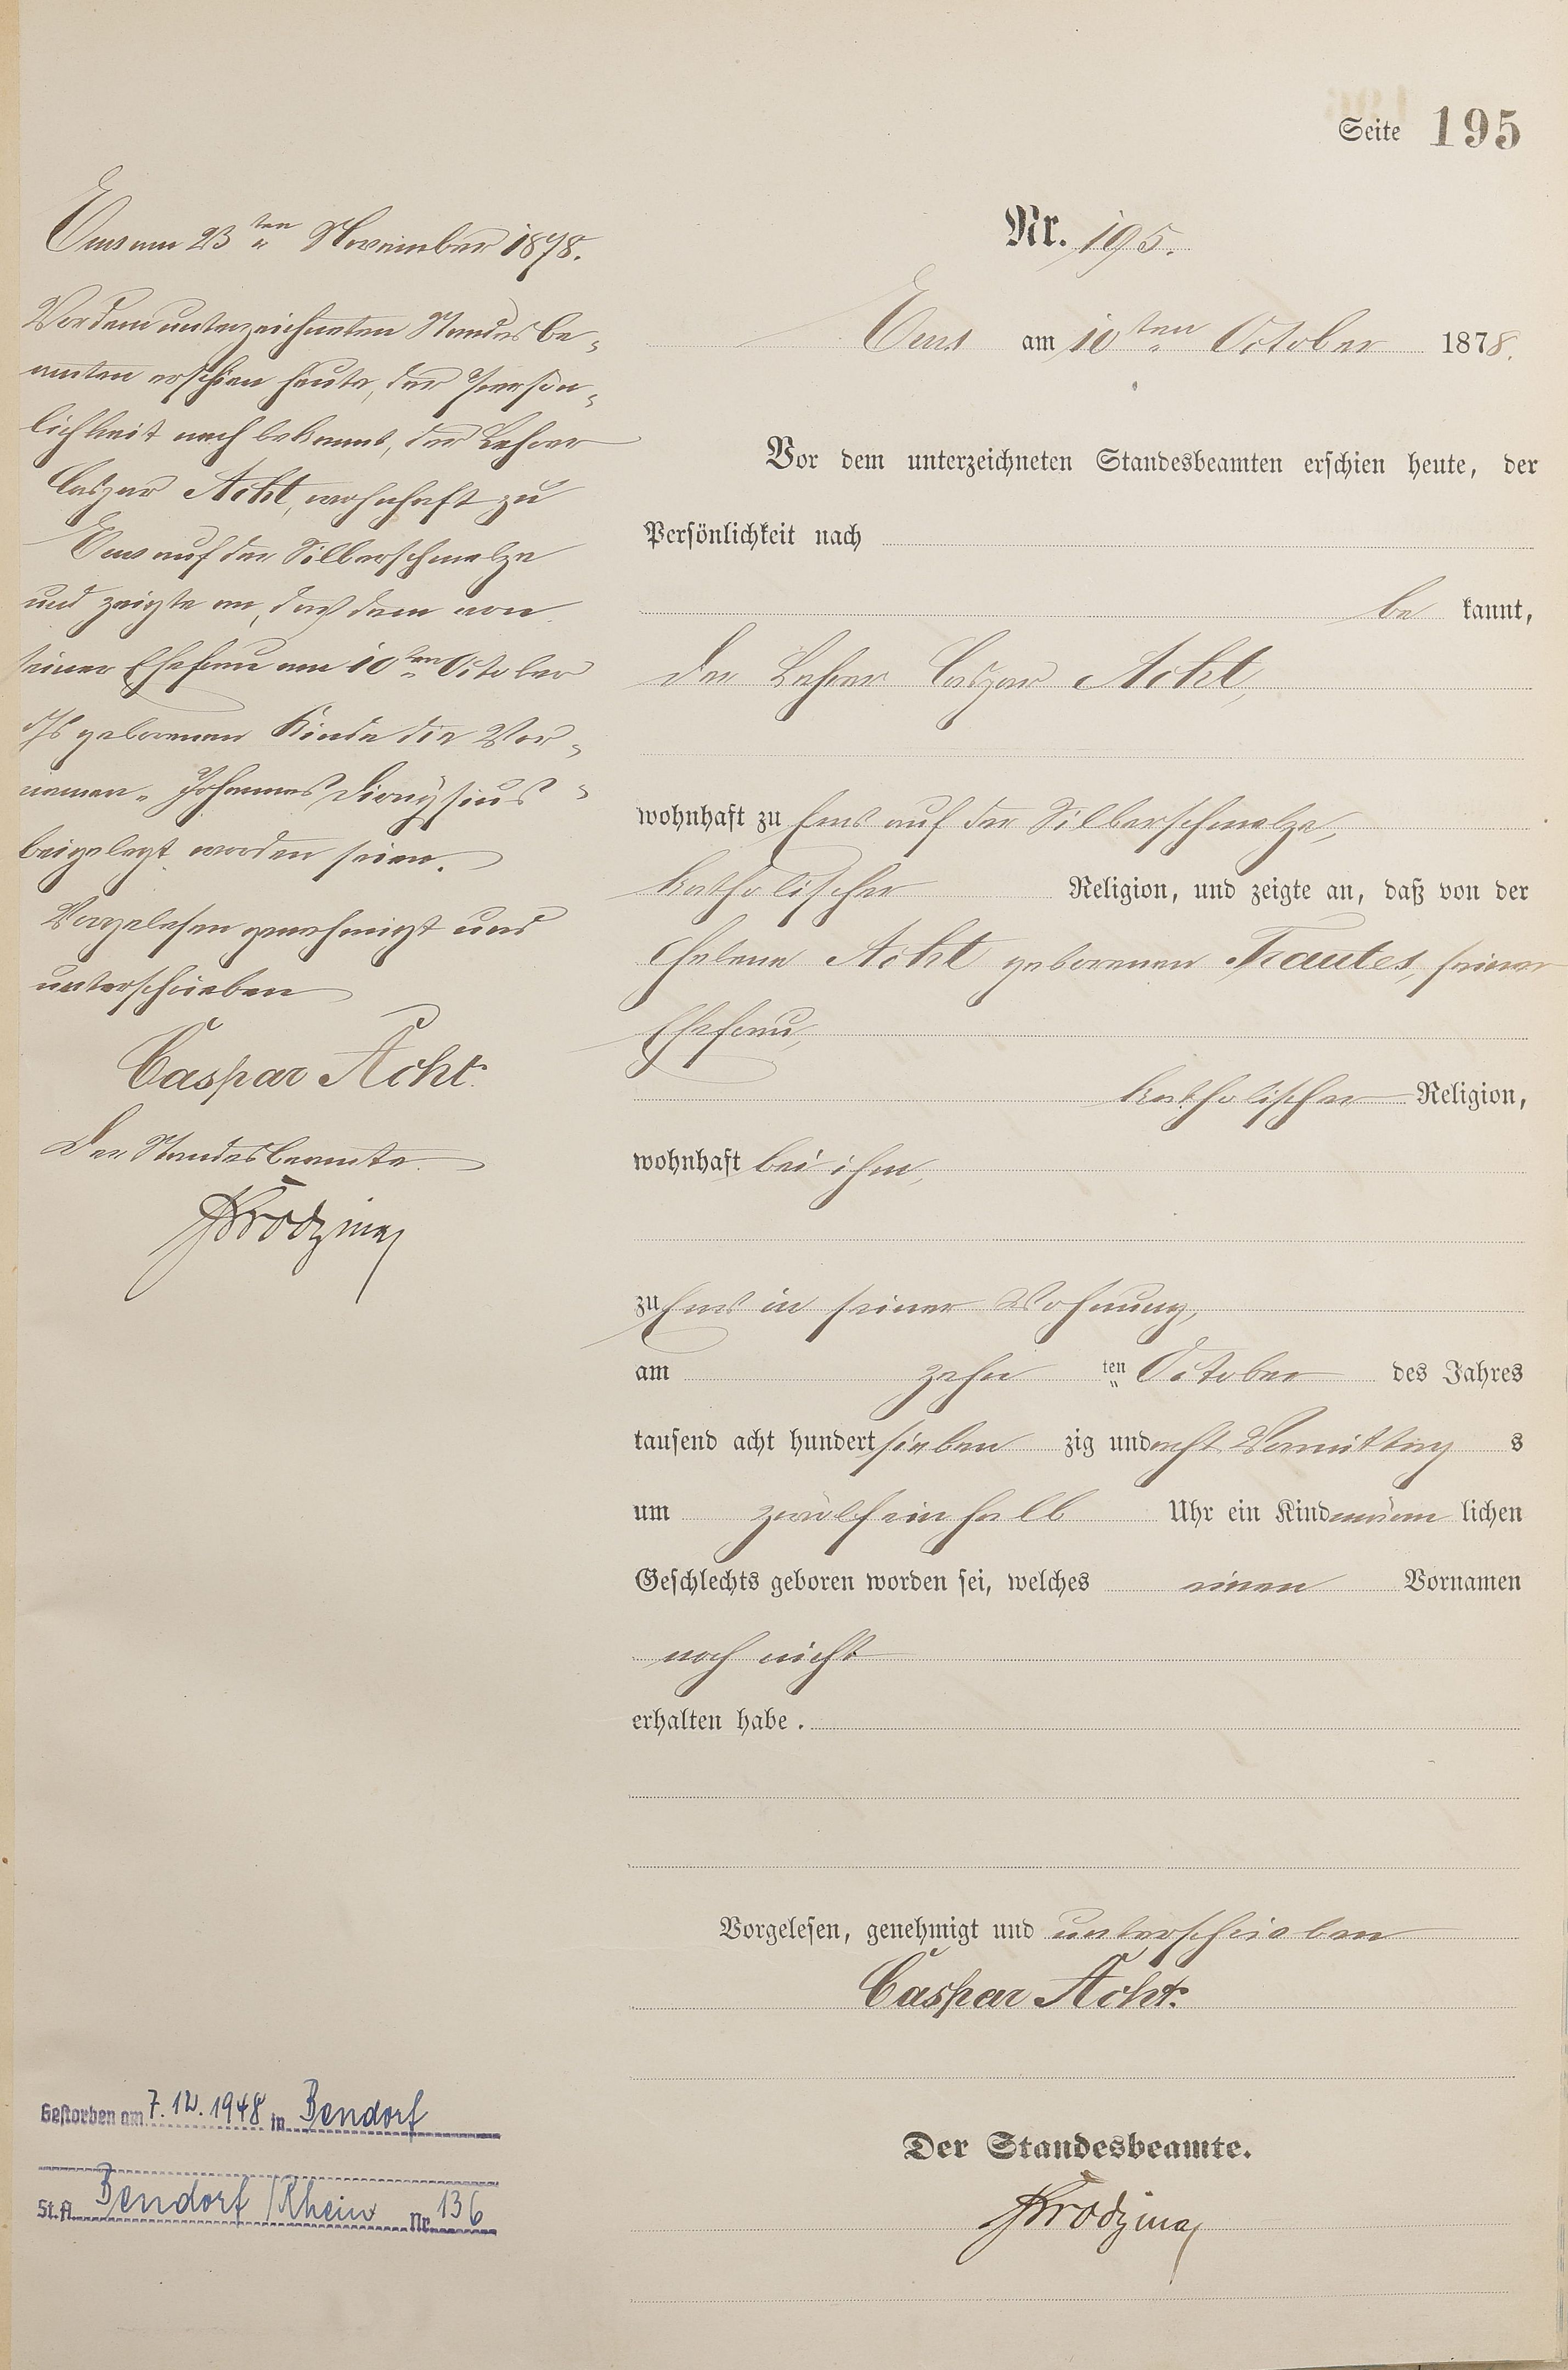 Seite 195
Nr. 195.
Ems am 10ten October 1878.
Vor dem unterzeichneten Standesbeamten erschien heute, der
Persönlichkeit nach
be kannt,
der Lehrer Caspar Acht,
wohnhaft zu Ems auf der Silberschmelze,
katholischer Religion, und zeigte an, daß von der
Helene Acht geborenen Trautes, seiner
Ehefrau,
katholischer Religion,
wohnhaft bei ihm,
zu Ems in seiner Wohnung,
am zehn ten October des Jahres
tausend acht hundert sieben zig und acht Vormittag s
um zwölfeinhalb Uhr ein Kind männ lichen
Geschlechts geboren worden sei, welches einen Vornamen
noch nicht
erhalten habe.
Vorgelesen, genehmigt und unterschrieben
Caspar Acht.
Der Standesbeamte.
Ems am 23ten November 1878.
Vor dem unterzeichneten Standesbe-
amten erschien heute, der Persön-
lichkeit nach bekannt, der Lehrer
Caspar Acht, wohnhaft zu
Ems auf der Silberschmelze
und zeigte an, daß dem von
seiner Ehefrau am 10ten October
ds Js geborenen Kinde die Vor-
namen "Johannes Dionysius"
beigelegt worden seien.
Vorgelesen genehmigt und
unterschrieben
Caspar Acht.
Der Standesbeamte.
Gestorben am 7.12.1948 in Bendorf
St.A. Bendorf/Rhein Nr. 136